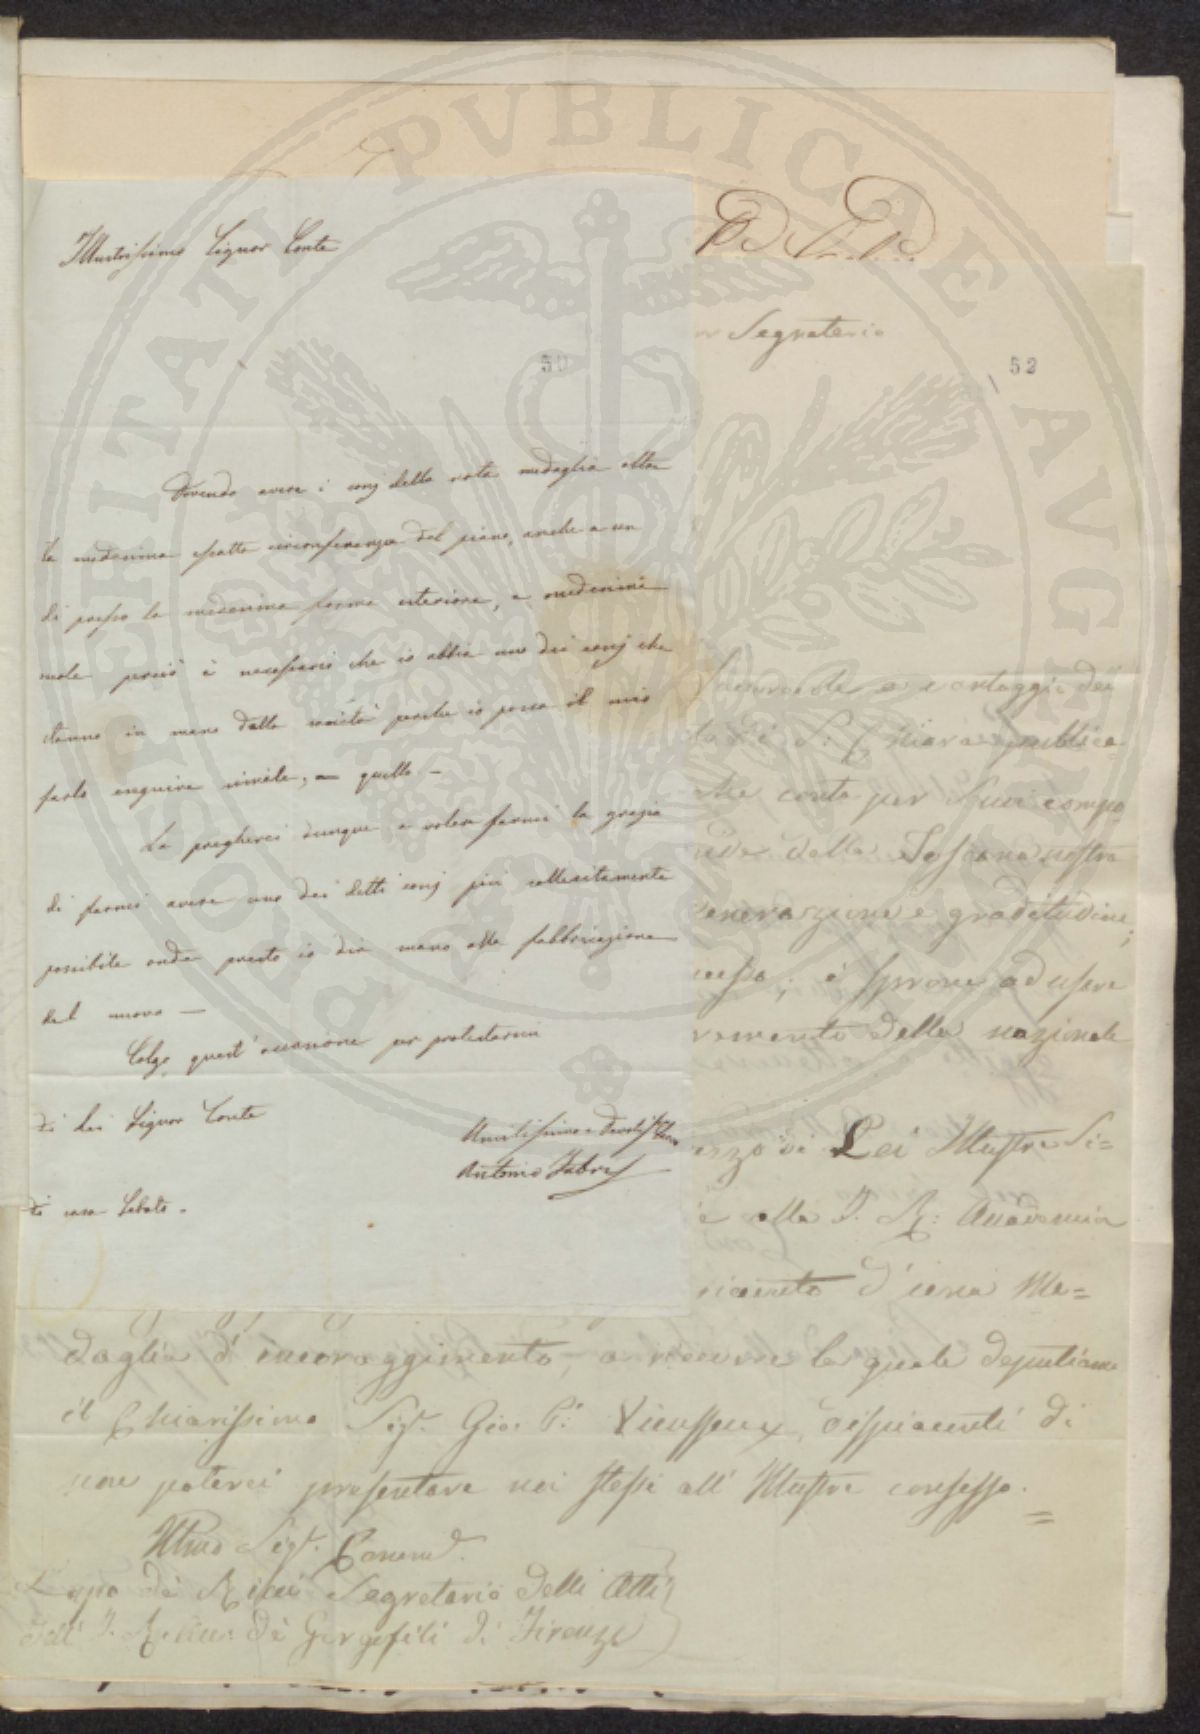 PROSPERITATI PVBLICAE AVGENDAE
Illustrissimo Signor Conte
50
Dovendo avere i conj della nota medaglia oltre
la medesima esatta circonferenza del piano, anche a un
di presso la medesima forma esteriore, e medesima
mole perciò è necessario che io abbia uno dei conj che
stanno in mano della società perche io possa il mio
farlo eseguire simile, a quello -
La pregherei dunque a voler farmi la grazia
di farmi avere uno dei detti conj più sollecitamente
possibile onde presto io dia mano alla fabbricazione
del nuovo -
Colgo quest'occasione per protestarmi
di Lei Signor Conte
Umilissimo e Devotiss
Antonio Fabris
di casa Sabato.
Segretario
52
e carteggi dei
S: Chiara pubblica
che conta per suoi compo
della Toscana nostra
venerazione e gratitudine;
è sprone ad essere
della nazionale
di Lei Illustre Si=
alla I. R: Accademia
d'una Me=
daglia d'incoraggimento, a ricevere la quale deputiamo
il Chiarissimo Sigr. Gio. P: Vieusseux, dispiacenti di
non poterci presentare noi stessi all'Illustre consesso. =
Illmo Sigr. Commend.
Lapo de Ricci Segretario delli Atti
dell' I. R. Acc: de Georgofili di Firenze